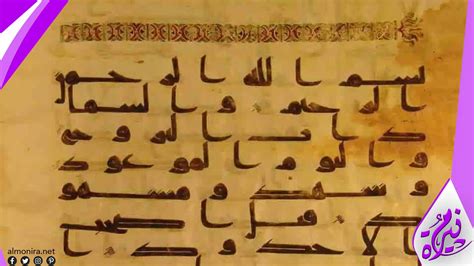 بسم الله الرحمن
الرحيم والسما
ذات البروج
واليوم الموعود
وشهد ومشهو
د قتل اصحب
الاخدود ا
almonira.net